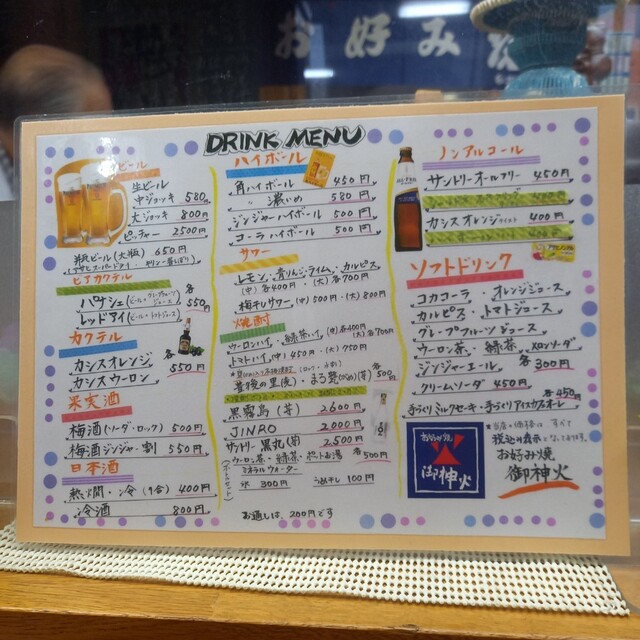 お好み
DRINK MENU
ビール
生ビール
中ジョッキ 580円
大ジョッキ 800円
ピッチャー 2500円
瓶ビール(大瓶) 650円
(アサヒスーパードライ・キリン一番しぼり)
ビアカクテル
パナシェ 各550円
レッドアイ(ビール・トマトジュース)
カクテル
カシスオレンジ
カシスウーロン
各550円
果実酒
梅酒(ソーダ・ロック) 500円
梅酒ジンジャー割 550円
日本酒
熱燗・冷(1合) 400円
冷酒 800円
ハイボール
角ハイボール 450円
〃 濃いめ 580円
ジンジャーハイボール 500円
コーラハイボール 500円
サワー
レモン・青りんご・ライム・カルピス
(中)各400円・(大)各700円
梅干しサワー(中)500円・(大)800円
焼酎
ウーロンハイ・緑茶ハイ(中)各400円 (大)各700円
トマトハイ(中)450円・(大)750円
各500円
黒霧島(芋) 2,600円
JINRO 2,000円
サントリー黒丸(芋) 2,500円
ウーロン茶・緑茶・ポットお湯 各500円
ミネラルウォーター
氷 300円 うめ干し 100円
お通しは、200円です
ノンアルコール
サントリーオールフリー 450円
カシスオレンジテイスト 400円
ソフトドリンク
コカコーラ・オレンジジュース
カルピス・トマトジュース
グレープフルーツジュース
ウーロン茶・緑茶・メロンソーダ
ジンジャーエール 各300円
クリームソーダ 450円
手づくりミルクセーキ・手づくりアイスカフェオーレ 各450円
お好み焼
御神火
*当店の価格は すべて
税込の表示となっております。
お好み焼
御神火